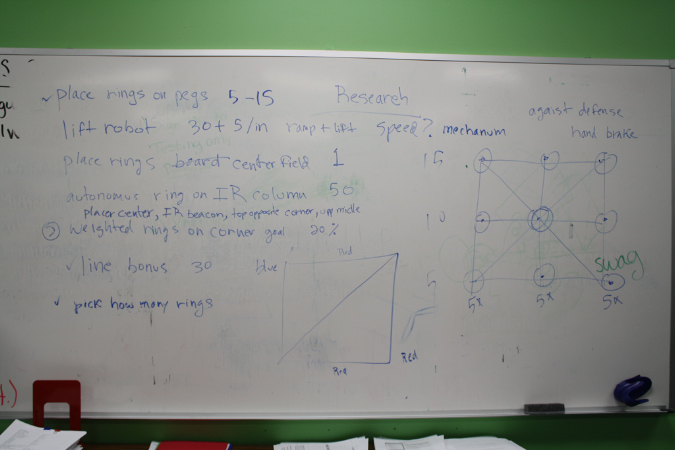 ✓ place rings on pegs 5-15
Research
lift robot 30 + 5/in ramp + lift Speed? mechanum
against defense
hand brake
place rings board center field 1
15
autonomus ring on IR column 50
placer center, IR beacon, top opposite corner, upp middle
weighted rings on corner goal 20%
10
✓ line bonus 30
blue
Red
5
swag
5x 5x 5x
✓ pick how many rings
Red